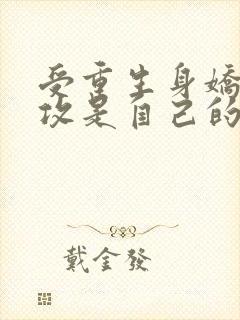 受重生身嬌
攻是自己的
戴金發